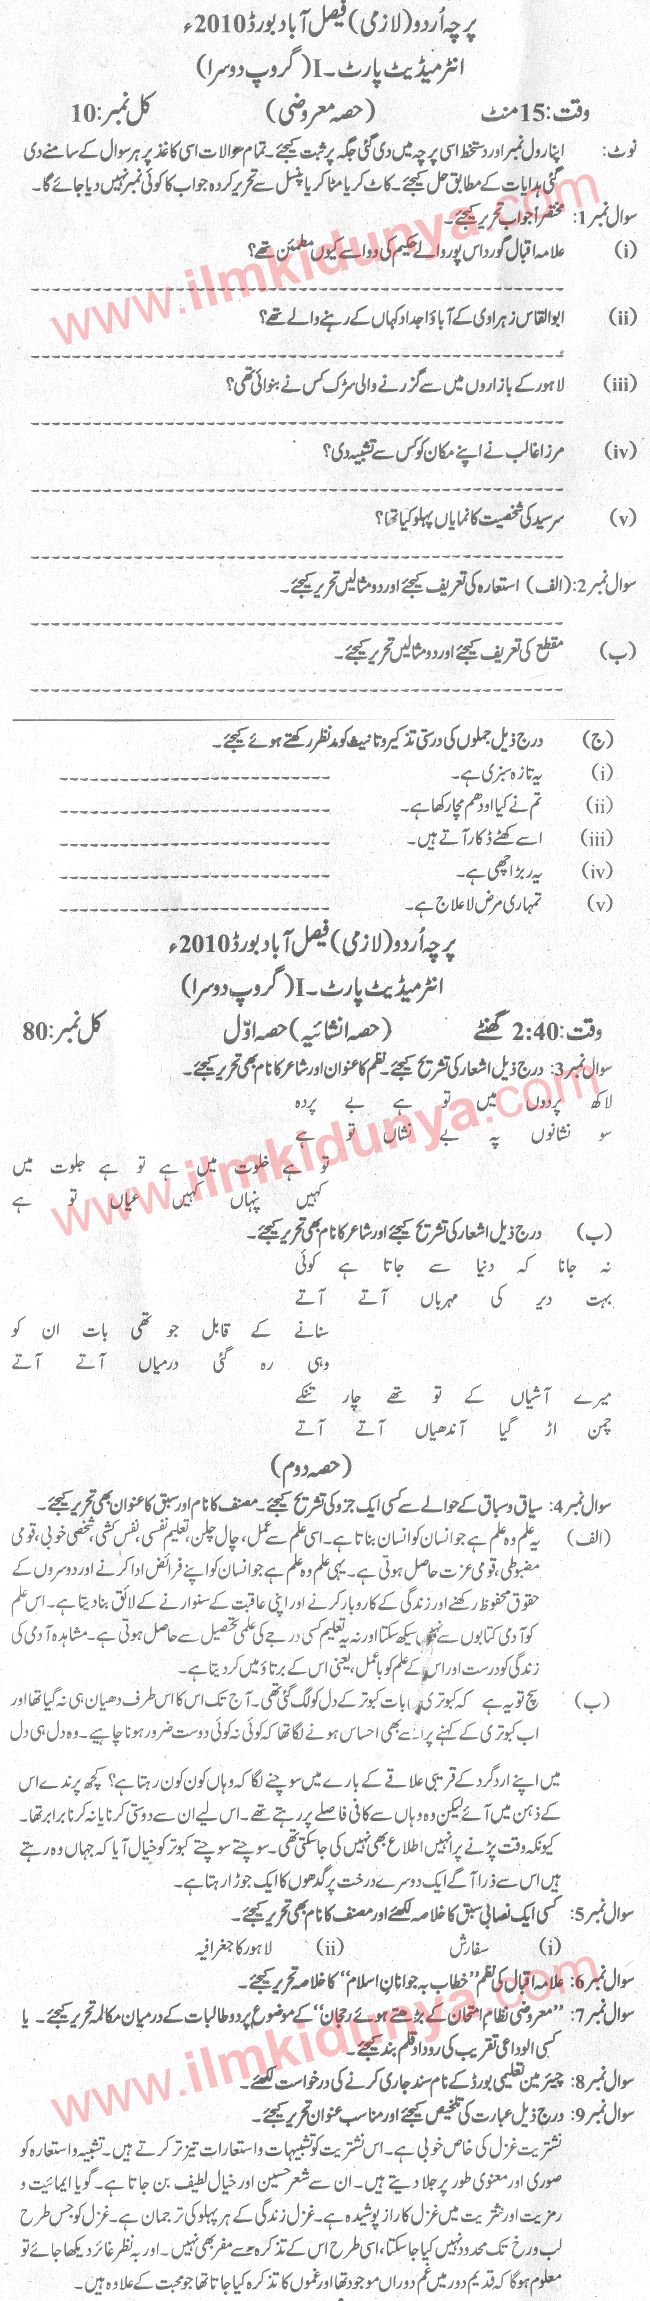 پرچہ اُردو (لازمی) فیصل آباد بورڈ 2010ء
انٹرمیڈیٹ پارٹ۔I (گروپ دوسرا)
وقت:15 منٹ (حصہ معروضی) کل نمبر:10
نوٹ: اپنا رول نمبر اور دستخط اسی پرچہ میں دی گئی جگہ پر ثبت کیجئے۔ تمام سوالات اسی کاغذ پر ہر سوال کے سامنے دی
گئی ہدایات کے مطابق حل کیجئے۔ کاٹ کر یا مٹا کر یا پنسل سے تحریر کردہ جواب کا کوئی نمبر نہیں دیا جائے گا۔
سوال نمبر1: مختصراً جواب تحریر کیجئے۔
(i) علامہ اقبال گورداس پور والے حکیم کی دوا سے کیوں مطمئن تھے؟
(ii) ابوالقاس زہراوی کے آباؤ اجداد کہاں کے رہنے والے تھے؟
(iii) لاہور کے بازاروں میں سے گزرنے والی سڑک کس نے بنوائی تھی؟
(iv) مرزا غالب نے اپنے مکان کو کس سے تشبیہ دی؟
(v) سرسید کی شخصیت کا نمایاں پہلو کیا تھا؟
سوال نمبر2: (الف) استعارہ کی تعریف کیجئے اور دو مثالیں تحریر کیجئے۔
(ب) مقطع کی تعریف کیجئے اور دو مثالیں تحریر کیجئے۔
(ج) درج ذیل جملوں کی درستی تذکیر و تانیث کو مدنظر رکھتے ہوئے کیجئے۔
(i) یہ تازہ سبزی ہے۔
(ii) تم نے کیا اودھم مچا رکھا ہے۔
(iii) اسے کھٹے ڈکار آتے ہیں۔
(iv) یہ ربڑ اچھی ہے۔
(v) تمہاری مرض لاعلاج ہے۔
پرچہ اُردو (لازمی) فیصل آباد بورڈ 2010ء
انٹرمیڈیٹ پارٹ۔I (گروپ دوسرا)
وقت:2:40 گھنٹے (حصہ انشائیہ) حصہ اوّل کل نمبر:80
سوال نمبر3: درج ذیل اشعار کی تشریح کیجئے۔ نظم کا عنوان اور شاعر کا نام بھی تحریر کیجئے۔
لاکھ پردوں میں تو ہے بے پردہ
سو نشانوں پہ بے نشاں تو ہے
تو ہے خلوت میں ہے تو ہے جلوت میں
کہیں پنہاں کہیں عیاں تو ہے
(ب) درج ذیل اشعار کی تشریح کیجئے اور شاعر کا نام بھی تحریر کیجئے۔
نہ جانا کہ دنیا سے جاتا ہے کوئی
بہت دیر کی مہرباں آتے آتے
سنانے کے قابل جو تھی بات ان کو
وہی رہ گئی درمیاں آتے آتے
میرے آشیاں کے تو تھے چار تنکے
چمن اڑ گیا آندھیاں آتے آتے
(حصہ دوم)
سوال نمبر4: سیاق و سباق کے حوالے سے کسی ایک جزو کی تشریح کیجئے۔ مصنف کا نام اور سبق کا عنوان بھی تحریر کیجئے۔
(الف) یہ علم وہ علم ہے جو انسان کو انسان بناتا ہے۔ اسی علم سے عمل، چال چلن، تعلیم نفسی، نفس کشی، شخصی خوبی، قومی
مضبوطی، قومی عزت حاصل ہوتی ہے۔ یہی علم وہ علم ہے جو انسان کو اپنے فرائض ادا کرنے اور دوسروں کے
حقوق محفوظ رکھنے اور زندگی کے کاروبار کرنے اور اپنی عاقبت کے سنوارنے کے لائق بنا دیتا ہے۔ اس علم
کو آدمی کتابوں سے نہیں سیکھ سکتا اور نہ یہ تعلیم کسی درجے کی علمی تحصیل سے حاصل ہوتی ہے۔ مشاہدہ آدمی کی
زندگی کو درست اور اس کے علم کو باعمل، یعنی اس کے برتاؤ میں کر دیتا ہے۔
(ب) سچ تو یہ ہے کہ کبوتری بات کبوتر کے دل کو لگ گئی تھی۔ آج تک اس کا اس طرف دھیان ہی نہ گیا تھا اور
اب کبوتری کے کہنے پر اسے بھی احساس ہونے لگا تھا کہ کوئی نہ کوئی دوست ضرور ہونا چاہیے۔ وہ دل ہی دل
میں اپنے ارد گرد کے قریبی علاقے کے بارے میں سوچنے لگا کہ وہاں کون کون رہتا ہے؟ کچھ پرندے اس
کے ذہن میں آئے لیکن وہ وہاں سے کافی فاصلے پر رہتے تھے۔ اس لیے ان سے دوستی کرنا یا نہ کرنا برابر تھا۔
کیونکہ وقت پڑنے پر انہیں اطلاع بھی نہیں کی جا سکتی تھی۔ سوچتے سوچتے کبوتر کو خیال آیا کہ جہاں وہ رہتے
ہیں اس سے ذرا آگے ایک دوسرے درخت پر گدھوں کا ایک جوڑا رہتا ہے۔
سوال نمبر5: کسی ایک نصابی سبق کا خلاصہ لکھئے اور مصنف کا نام بھی تحریر کیجئے۔
(i) سفارش (ii) لاہور کا جغرافیہ
سوال نمبر6: علامہ اقبال کی نظم "خطاب بہ جوانانِ اسلام" کا خلاصہ تحریر کیجئے۔
سوال نمبر7: "معروضی نظام امتحان کے بڑھتے ہوئے رجحان" کے موضوع پر دو طالبات کے درمیان مکالمہ تحریر کیجئے۔ یا
کسی الوداعی تقریب کی روداد قلم بند کیجئے۔
سوال نمبر8: چیئرمین تعلیمی بورڈ کے نام سند جاری کرنے کی درخواست لکھئے۔
سوال نمبر9: درج ذیل عبارت کی تلخیص کیجئے اور مناسب عنوان تحریر کیجئے۔
نشتریت غزل کی خاص خوبی ہے۔ اس نشتریت کو تشبیہات و استعارات تیز تر کرتے ہیں۔ تشبیہ و استعارہ کو
صوری اور معنوی طور پر جلا دیتے ہیں۔ ان سے شعر حسین اور خیال لطیف بن جاتا ہے۔ گویا ایمائیت و
رمزیت اور نشریت میں غزل کا راز پوشیدہ ہے۔ غزل زندگی کے ہر پہلو کی ترجمان ہے۔ غزل کو جس طرح
لب و رخ تک محدود نہیں کیا جا سکتا، اسی طرح اس کے تذکرہ سے مفر بھی نہیں۔ اور بہ نظر غائر دیکھا جائے تو
معلوم ہوگا کہ قدیم دور میں غم دوراں موجود تھا اور غموں کا تذکرہ کیا جاتا تھا جو محبت کے علاوہ ہیں۔
www.ilmkidunya.com
www.ilmkidunya.com
www.ilmkidunya.com